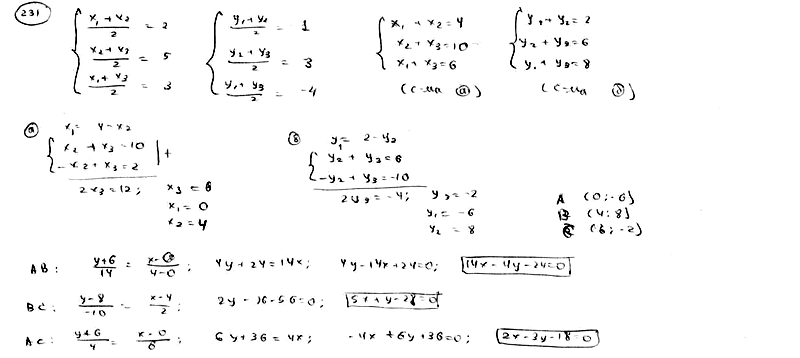 231
x₁ + x₂ / 2 = 2
x₂ + x₃ / 2 = 5
x₁ + x₃ / 2 = 3
y₁ + y₂ / 2 = 1
y₂ + y₃ / 2 = 3
y₁ + y₃ / 2 = -4
x₁ + x₂ = 4
x₂ + x₃ = 10
x₁ + x₃ = 6
(с-ма а)
y₁ + y₂ = 2
y₂ + y₃ = 6
y₁ + y₃ = 8
а x₁ = 4 - x₂
x₂ + x₃ = 10
-x₂ + x₃ = 2
+
2x₃ = 12;
x₃ = 6
x₁ = 0
x₂ = 4
y₁ = 2 - y₂
y₂ + y₃ = 6
-y₂ + y₃ = -10
2y₃ = -4;
y₃ = -2
y₁ = -6
y₂ = 8
A (0; -6)
B (4; 8)
C (6; -2)
AB: y+6 / 14 = x-0 / 4-0; 4y + 24 = 14x; 4y - 14x + 24 = 0; 14x - 4y - 24 = 0
BC: y-8 / -10 = x-4 / 2; 5x + y - 28 = 0
AC: y+6 / 4 = x-0 / 6; 6y + 36 = 4x; -4x + 6y + 36 = 0; 2x - 3y - 18 = 0